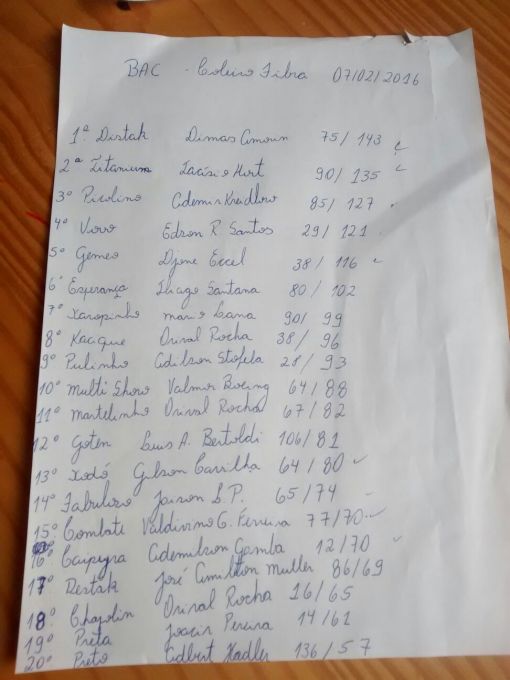 BAC - Coleiro Fibra 07/02/2016
1º Distak Dimas Amorin 75/143
2º Titanium Tacisio Hort 90/135
3º Picolino Ademir Kreidlow 85/127
4º Vovo Edson R. Santos 29/121
5º Gemeo Djone Eccel 38/116
6º Esperança Thiago Santana 80/102
7º Xaropinho Mario Lama 90/99
8º Kacique Orival Rocha 38/96
9º Pulinho Edilson Stofela 28/93
10º Multi Show Valmor Boeing 64/88
11º Martelinho Orival Rocha 67/82
12º Goten Luis A. Bertoldi 106/81
13º Xodó Gilson Carrilha 64/80
14º Fabuloso Joison L.P. 65/74
15º Combate Valdivino G. Ferreira 77/70
16º Ademilson Gamba 12/70
17º Destak José Amilton Muller 86/69
18º Chapolin Orival Rocha 16/65
19º Preta Joacir Pereira 14/61
20º Preto Edbert Hadler 136/57